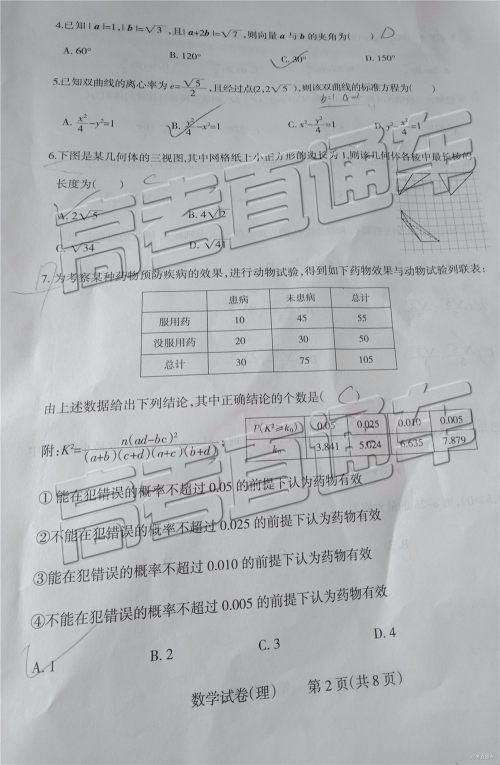 4.已知|a|=1,|b|=√3,且|a+2b|=√7,则向量a与b的夹角为( ) D
A. 60° B. 120° C. 30° D. 150°
5.已知双曲线的离心率为e=√5/2,且经过点(2,2√5),则该双曲线的标准方程为( )
A. x²/4-y²=1 B. y²/4-x²=1 C. x²-y²/4=1 D. y²-x²/4=1
6.下图是某几何体的三视图,其中网格纸上小正方形的边长为1,则该几何体各棱中最长棱的
长度为( )
A. 2√5 B. 4√2
C. √34 D. √41
7.为考察某种药物预防疾病的效果,进行动物试验,得到如下药物效果与动物试验列联表:
患病 未患病 总计
服用药 10 45 55
没服用药 20 30 50
总计 30 75 105
由上述数据给出下列结论,其中正确结论的个数是( C )
附:K²=n(ad-bc)²/(a+b)(c+d)(a+c)(b+d);
P(K²≥k₀) 0.05 0.025 0.010 0.005
k₀ 3.841 5.024 6.635 7.879
①能在犯错误的概率不超过0.05的前提下认为药物有效
②不能在犯错误的概率不超过0.025的前提下认为药物有效
③能在犯错误的概率不超过0.010的前提下认为药物有效
④不能在犯错误的概率不超过0.005的前提下认为药物有效
A. 1 B. 2 C. 3 D. 4
数学试卷(理) 第2页(共8页)
高考直通车
高考直通车